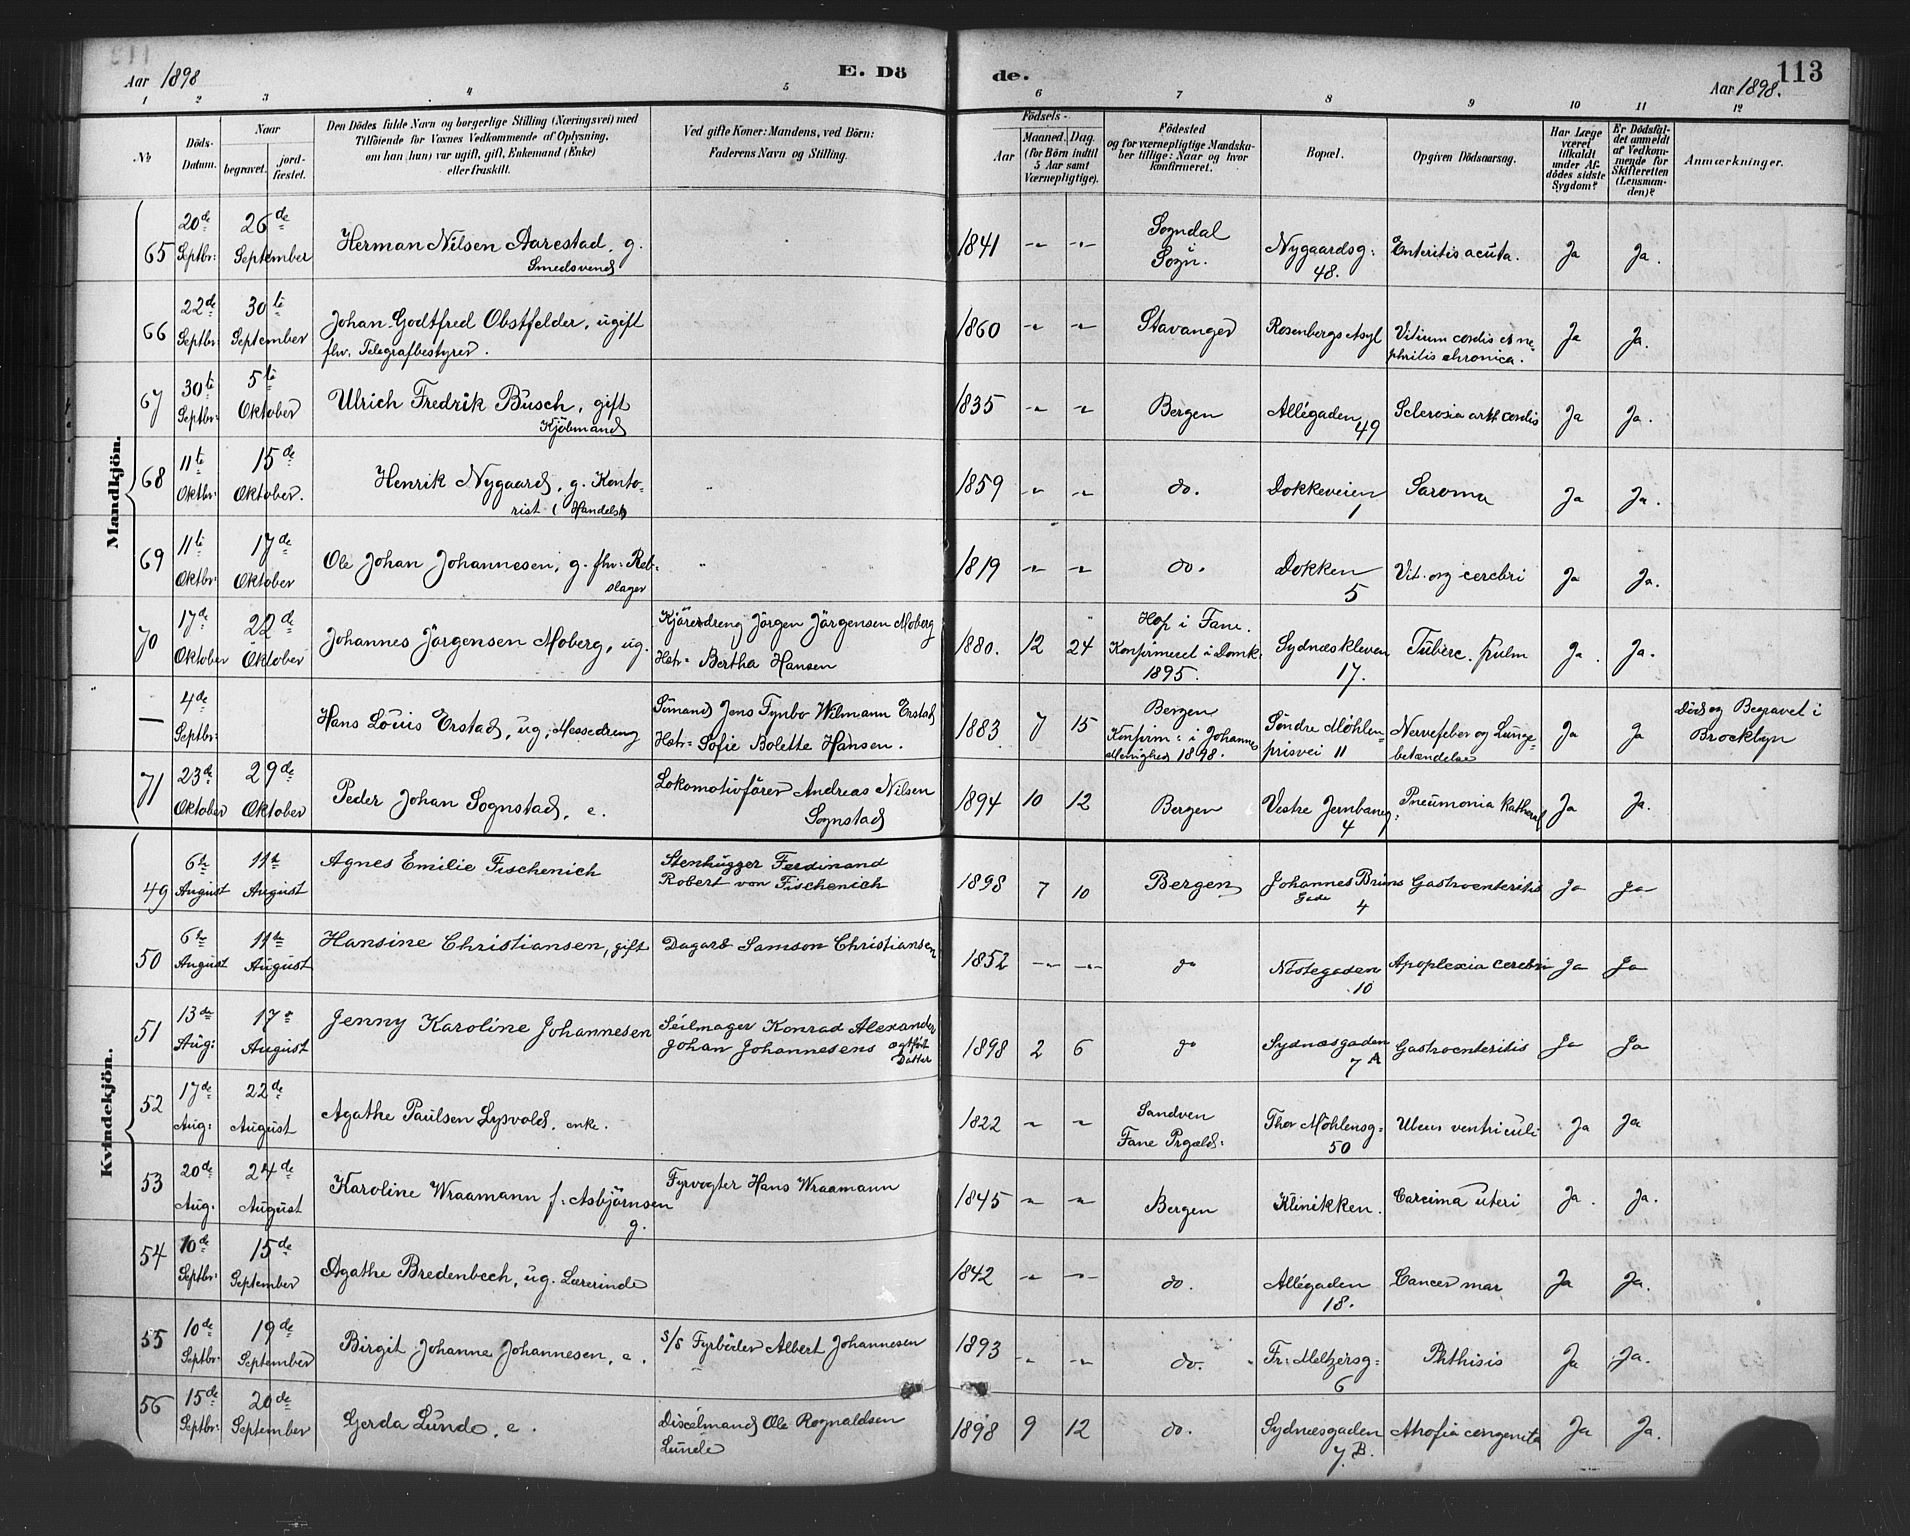 Aar 1898 E. Dö de. Aar 1898. 113
1 2 3 4 5 6 7 8 9 10 11 12
No
Döds-
Datum.
Naar
begravet. jord-
fæstet.
Den Dödes fulde Navn og borgerlige Stilling (Næringsvei) med
Tilföiende for Voxnes Vedkommende af Oplysning,
om han (hun) var ugift, gift, Enkemand (Enke)
eller fraskilt.
Ved gifte Koner: Mandens, ved Börn:
Faderens Navn og Stilling.
Födsels-
Aar Maaned. Dag.
(for Börn indtil
5 Aar samt
Værnepligtige).
Födested
og for værnepligtige Mandska-
ber tillige: Naar og hvor
konfirmeret.
Bopæl.
Opgiven Dödsaarsag.
Har Læge
været
tilkaldt
under Af-
dödes sidste
Sygdom?
Er Dödsfal-
det anmeldt
af Vedkom-
mende for
Skifteretten
(Lensman-
den)?
Anmærkninger.
Mandkjön.
65 20de Septbr: 26de September Herman Nilsen Aarestad, g.
Smedsvend
1841 -"- -"- Sogndal i Sogn. Nygaardsg: 48. Enteritis acuta. Ja Ja.
66 22de Septbr: 30te September Johan Godtfred Obstfelder, ugift
fhv. Telegrafbestyrer.
1860 -"- -"- Stavanger Rosenbergs Asyl Vitium cordis et ne-
phritis chronica. Ja Ja.
67 30te Septbr: 5te Oktober Ulrich Fredrik Busch, gift
Kjöbmand
1835 -"- -"- Bergen Allégaden 49 Sclerosia arth cordis Ja Ja.
68 11te Oktbr: 15de Oktober. Henrik Nygaard, g. Konto-
rist (Handelsk)
1859 -"- -"- do. Dokkeveien 1 Saroma Ja Ja.
69 11te Oktbr: 17de Oktober Ole Johan Johannesen, g. fhv: Reb-
slager
1819 -"- -"- do. Dokken 5 Vit. org cerebri Ja Ja.
70 17de Oktober 22de Oktober Johannes Jörgensen Moberg, ug. Kjöredreng Jörgen Jörgensen Moberg
Hstr: Bertha Hansen
1880. 12 24 Hop i Fane.
Konfirmeret i Domk.
1895. Sydnæskleven 17. Tuberc. pulm Ja. Ja.
— 4de Septbr: Hans Louis Erstad, ug, Messedreng Sömand Jens Fynbo Wilmann Erstad
Hstr: Sofie Bolette Hansen.
1883 7 15 Bergen
Konfirm: i Johannes
Menighed 1898. Söndre Möhlen-
prisvei 11 Nervefeber og Lunge-
betændelse Ja Ja Död og Begravet i
Brocklyn
71 23de Oktober 29de Oktober Peder Johan Sognstad, e. Lokomotivförer Andreas Nilsen
Sognstad
1894 10 12 Bergen Vestre Jernbaneg: 4 Pneumonia Katharral Ja Ja.
Kvindekjön.
49 6te August 11te August Agnes Emilie Fischenich Stenhugger Ferdinand
Robert von Fischenich
1898 7 10 Bergen Johannes Bruns
Gade 4 Gastroenteritis Ja Ja
50 6te August 11te August Hansine Christiansen, gift Dagarb Samson Christiansen
1852 -"- -"- do Nöstegaden 10 Apoplexia cerebri Ja Ja
51 13de Aug: 17de August Jenny Karoline Johannesen Seilmager Konrad Alexander
Johan Johannesens ægtefödt
Datter
1898 2 6 do Sydnæsgaden 7 A Gastroenteritis Ja Ja
52 17de Aug: 22de August Agathe Paulsen Lysvold, enke.
1822 -"- -"- Sandven
Fane Prgæld: Thor Möhlensg: 50 Ulcus ventriculi Ja Ja
53 20de Aug: 24de August Karoline Wraamann f: Asbjörnsen
g. Fyrvogter Hans Wraamann
1845 -"- -"- Bergen Klinikken. Carcima uteri Ja. Ja.
54 10de Septbr: 15de September Agathe Bredenbech, ug. Lærerinde
1842 -"- -"- do. Allégaden 18. Cancer mar Ja Ja.
55 10de Septbr: 19de September Birgit Johanne Johannesen, e. S/S Fyrböder Albert Johannesen
1893 -"- -"- do. Fr: Meltzersg: 6 Phthisis Ja Ja.
56 15de Septbr: 20de September Gerda Lunde, e. Ole Rognaldsen
Lunde
1898 9 12 do. Sydnæsgaden 7 B. Atrofia congenita Ja Ja.